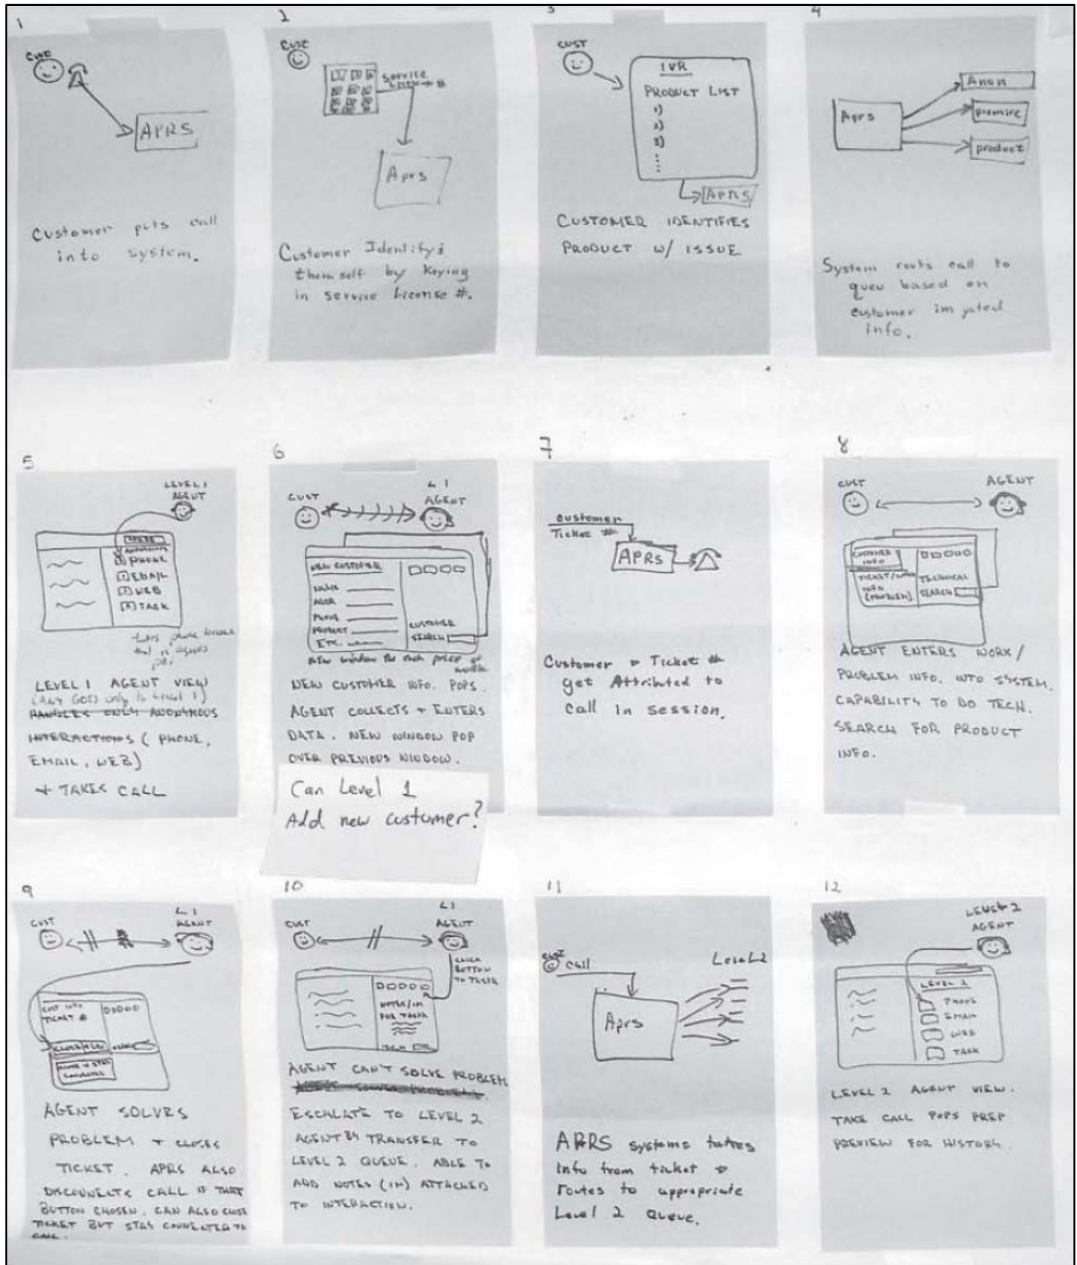 1
CUST
APRS
Customer puts call
into system.
2
CUST
SERVICE
Aprs
Customer Identifys
themself by Keying
in service License #.
3
CUST
IVR
PRODUCT LIST
1)
2)
3)
APRS
CUSTOMER IDENTIFIES
PRODUCT W/ ISSUE
4
Aprs
Anon
premire
product
System routs call to
queu based on
customer
info.
5
LEVEL 1
AGENT
PHONE
EMAIL
WEB
TASK
LEVEL 1 AGENT VIEW
HANDLES ONLY ANONYMOUS
INTERACTIONS (PHONE,
EMAIL, WEB)
+ TAKES CALL
6
CUST
L1
AGENT
NEW CUSTOMER
NAME
ADDR
PHONE
PRODUCT
ETC.
CUSTOMER
SEARCH
new window for each
NEW CUSTOMER INFO. POPS.
AGENT COLLECTS + ENTERS
DATA. NEW WINDOW POP
OVER PREVIOUS WINDOW.
Can Level 1
Add new customer?
7
customer
Ticket #
APRS
Customer + Ticket #
get Attributed to
call in session.
8
CUST
AGENT
CUSTOMER
INFO
TICKET/WORK
INFO
(PROBLEM)
TECHNICAL
SEARCH
AGENT ENTERS WORK/
PROBLEM INFO. INTO SYSTEM.
CAPABILITY TO DO TECH.
SEARCH FOR PRODUCT
INFO.
9
CUST
L1
AGENT
CUST INFO
TICKET #
AGENT SOLVES
PROBLEM + CLOSES
TICKET. APRS ALSO
DISCONNECTS CALL IF THAT
BUTTON CHOSEN. CAN ALSO CLOSE
TICKET BUT STAY CONNECTED TO
CALL.
10
CUST
L1
AGENT
CLICK
BUTTON
TO TASK
NOTES/IM
FOR TASK
TECH
AGENT CAN'T SOLVE PROBLEM
ESCALATE TO LEVEL 2
AGENT BY TRANSFER TO
LEVEL 2 QUEUE. ABLE TO
ADD NOTES (IM) ATTACHED
TO INTERACTION.
11
CUST
Call
Aprs
Level 2
APRS systems takes
Info from ticket +
routes to appropriate
Level 2 Queue.
12
LEVEL 2
AGENT
LEVEL 2
PHONE
EMAIL
WEB
TASK
LEVEL 2 AGENT VIEW.
TAKE CALL POPS PREP
PREVIEW FOR HISTORY.